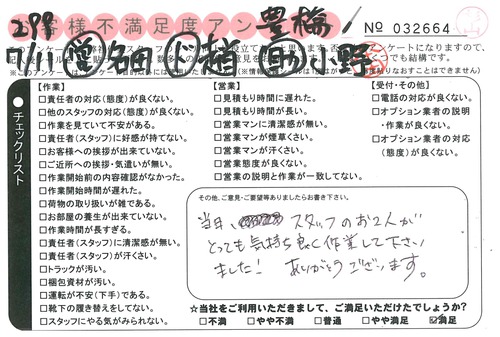 298 豊橋
お客様不満足度アンケート
No 032664
7/11 名田 越 助 小野
●チェックリスト
【作業】
□責任者の対応(態度)が良くない。
□他のスタッフの対応(態度)が良くない。
□作業を見ていて不安がある。
□責任者(スタッフ)に好感が持てない。
□お客様への挨拶が出来ていない。
□ご近所への挨拶・気遣いが無い。
□作業開始前の内容確認がなかった。
□作業開始時間が遅れた。
□荷物の取り扱いが雑である。
□お部屋の養生が出来ていない。
□作業時間が長すぎる。
□責任者(スタッフ)に清潔感が無い。
□責任者(スタッフ)が汗くさい。
□トラックが汚い。
□梱包資材が汚い。
□運転が不安(下手)である。
□靴下の履き替えをしてない。
□スタッフにやる気がみられない。
【営業】
□見積もり時間に遅れた。
□見積もり時間が長い。
□営業マンに清潔感が無い。
□営業マンが煙草くさい。
□営業マンが汗くさい。
□営業態度が良くない。
□営業の説明と作業が一致してない。
【受付・その他】
□電話の対応が良くない。
□オプション業者の説明
・作業が良くない。
□オプション業者の対応
(態度)が良くない。
その他、ご意見・ご要望等ありましたらお書き下さい。
当日、スタッフのお2人が
とっても気持ち良く作業して下さい
ました! ありがとうございます。
☆当社をご利用いただきまして、ご満足いただけたでしょうか?
□不満 □やや不満 □普通 □やや満足 ☑満足